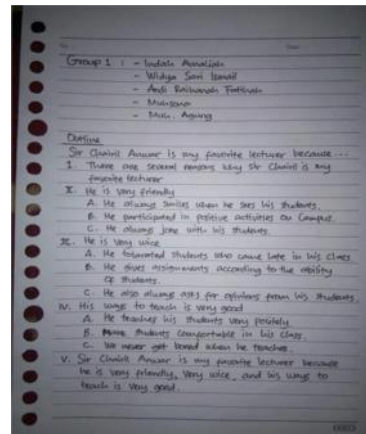 No. Date.
Group 1 : - Indah Amaliah
- Widya Sari Ismail
- Andi Raihanah Fathiyah
- Muhsana
- Muh. Agung
Outline
Sir Chairil Anwar is my favorite lecturer because...
I. There are several reasons why Sir Chairil is my
favorite lecturer
II. He is very friendly
A. He always smiles when he sees his students.
B. He participated in positive activities on Campus.
C. He always joke with his students.
III. He is very wice
A. He tolerated students who came late in his class
B. He gives assignments according to the ability
of students.
C. He also always asks for opinions from his students.
IV. His ways to teach is very good
A. He teaches his students very politely
B. students comfortable in his class.
C. We never get bored when he teaches.
V. Sir Chairil Anwar is my favorite lecturer because
he is very friendly, very wice, and his ways to
teach is very good.